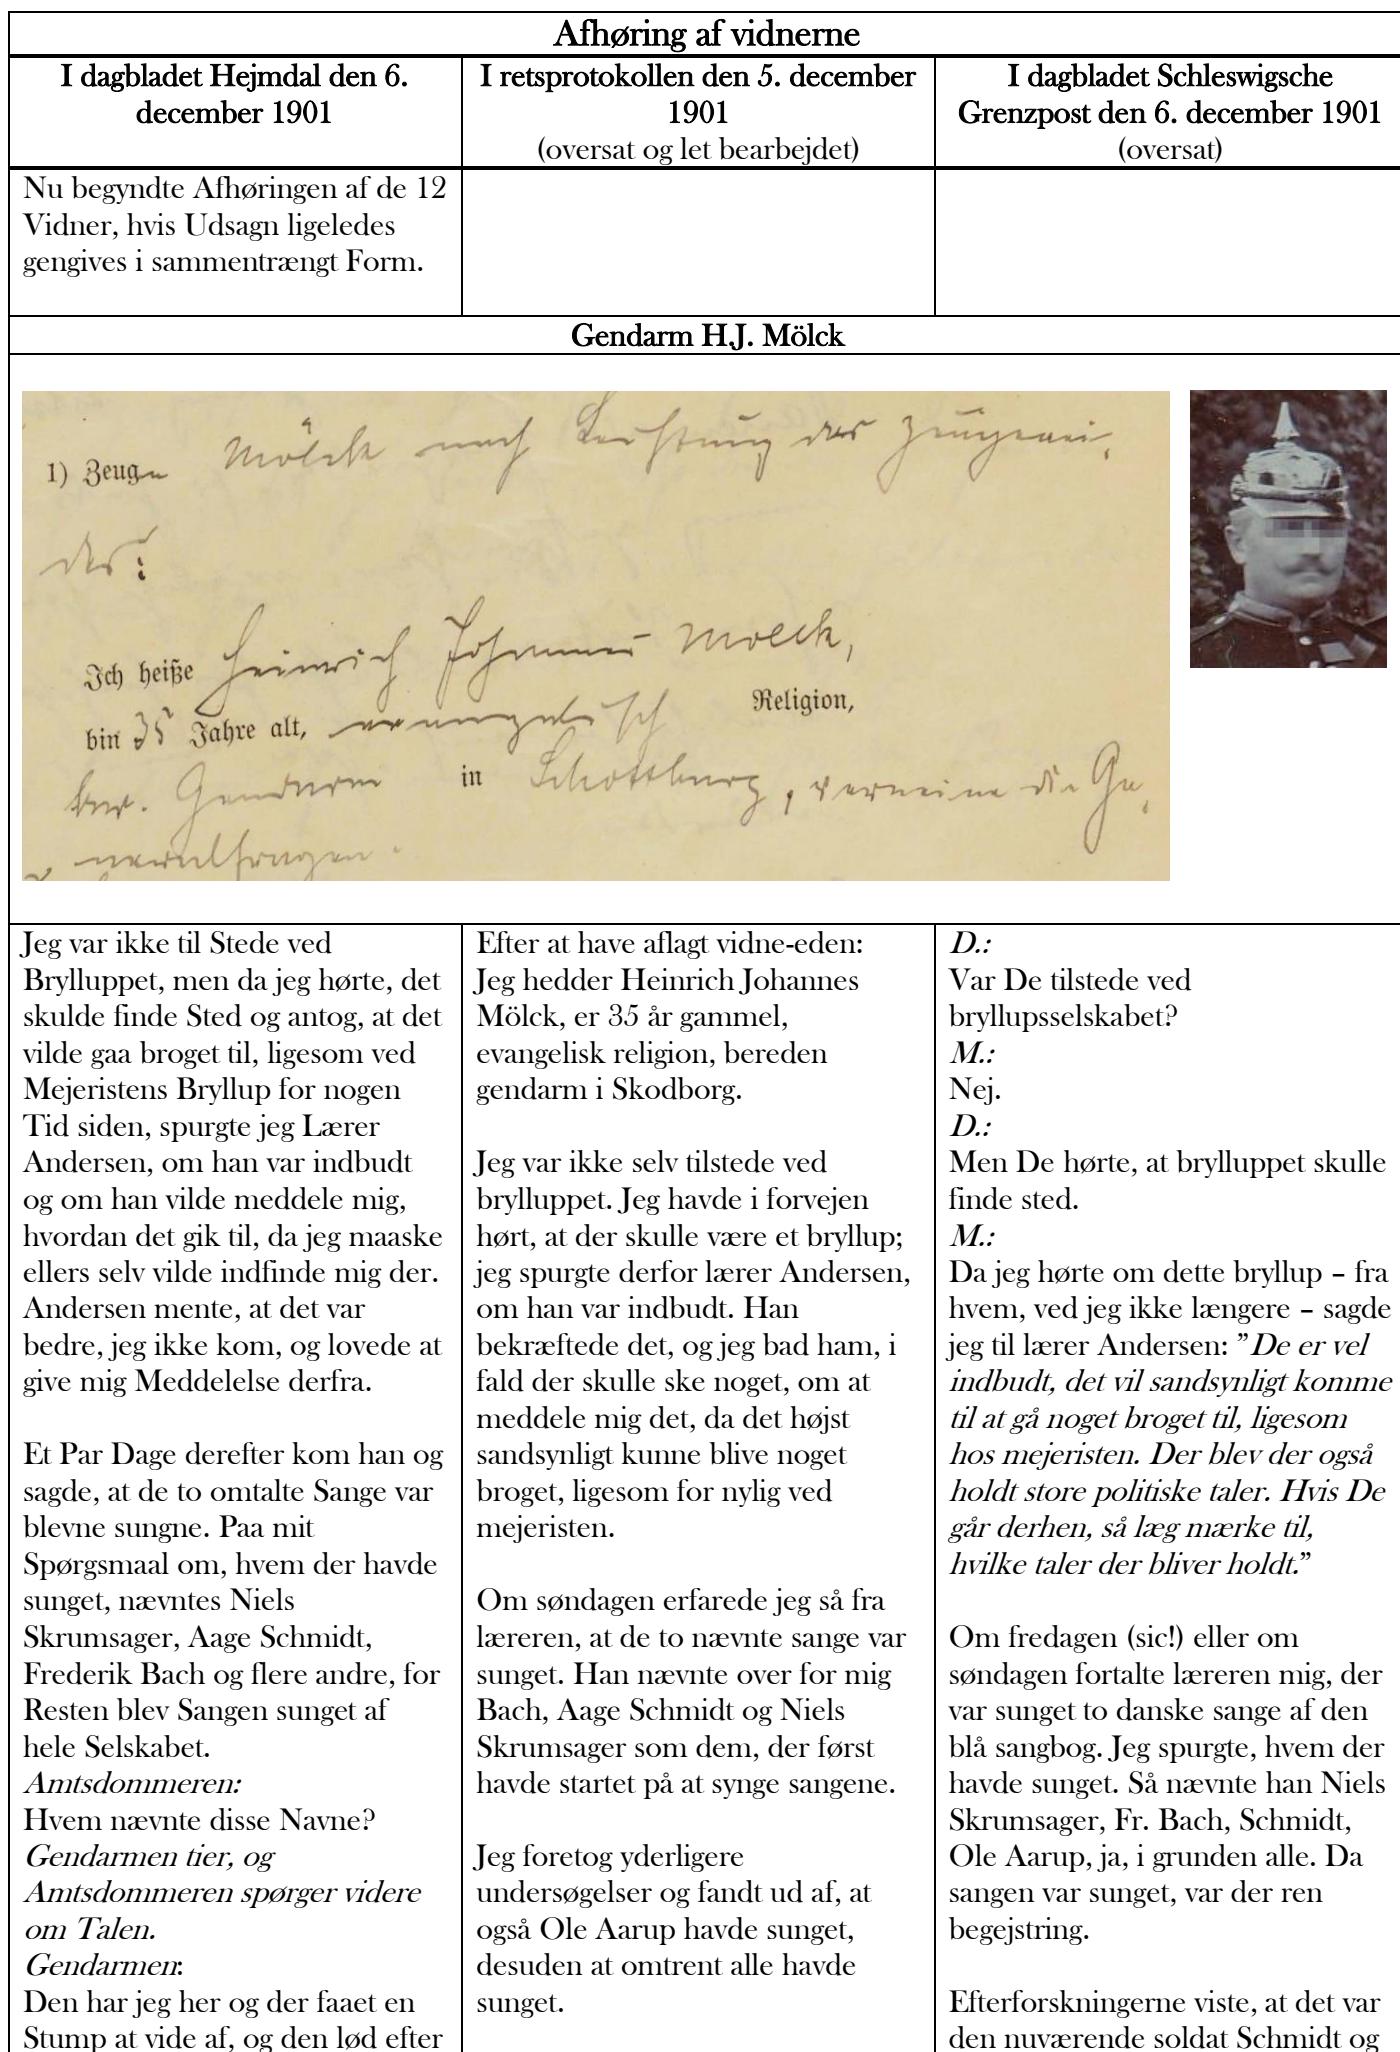 Afhøring af vidnerne
I dagbladet Hejmdal den 6.
december 1901
I retsprotokollen den 5. december
1901
(oversat og let bearbejdet)
I dagbladet Schleswigsche
Grenzpost den 6. december 1901
(oversat)
Nu begyndte Afhøringen af de 12
Vidner, hvis Udsagn ligeledes
gengives i sammentrængt Form.
Gendarm H.J. Mölck
1) Zeuge Mölck nach Leistung des Zeugenei-
des:
Ich heiße Heinrich Johannes Mölck,
bin 35 Jahre alt, evangelisch Religion,
ber. Gendarm in Schottburg, verneine die Ge-
neralfragen.
Jeg var ikke til Stede ved
Brylluppet, men da jeg hørte, det
skulde finde Sted og antog, at det
vilde gaa broget til, ligesom ved
Mejeristens Bryllup for nogen
Tid siden, spurgte jeg Lærer
Andersen, om han var indbudt
og om han vilde meddele mig,
hvordan det gik til, da jeg maaske
ellers selv vilde indfinde mig der.
Andersen mente, at det var
bedre, jeg ikke kom, og lovede at
give mig Meddelelse derfra.
Et Par Dage derefter kom han og
sagde, at de to omtalte Sange var
blevne sungne. Paa mit
Spørgsmaal om, hvem der havde
sunget, nævntes Niels
Skrumsager, Aage Schmidt,
Frederik Bach og flere andre, for
Resten blev Sangen sunget af
hele Selskabet.
Amtsdommeren:
Hvem nævnte disse Navne?
Gendarmen tier, og
Amtsdommeren spørger videre
om Talen.
Gendarmen:
Den har jeg her og der faaet en
Stump at vide af, og den lød efter
Efter at have aflagt vidne-eden:
Jeg hedder Heinrich Johannes
Mölck, er 35 år gammel,
evangelisk religion, bereden
gendarm i Skodborg.
Jeg var ikke selv tilstede ved
brylluppet. Jeg havde i forvejen
hørt, at der skulle være et bryllup;
jeg spurgte derfor lærer Andersen,
om han var indbudt. Han
bekræftede det, og jeg bad ham, i
fald der skulle ske noget, om at
meddele mig det, da det højst
sandsynligt kunne blive noget
broget, ligesom for nylig ved
mejeristen.
Om søndagen erfarede jeg så fra
læreren, at de to nævnte sange var
sunget. Han nævnte over for mig
Bach, Aage Schmidt og Niels
Skrumsager som dem, der først
havde startet på at synge sangene.
Jeg foretog yderligere
undersøgelser og fandt ud af, at
også Ole Aarup havde sunget,
desuden at omtrent alle havde
sunget.
D.:
Var De tilstede ved
bryllupsselskabet?
M.:
Nej.
D.:
Men De hørte, at brylluppet skulle
finde sted.
M.:
Da jeg hørte om dette bryllup – fra
hvem, ved jeg ikke længere – sagde
jeg til lærer Andersen: ”De er vel
indbudt, det vil sandsynligt komme
til at gå noget broget til, ligesom
hos mejeristen. Der blev der også
holdt store politiske taler. Hvis De
går derhen, så læg mærke til,
hvilke taler der bliver holdt.”
Om fredagen (sic!) eller om
søndagen fortalte læreren mig, der
var sunget to danske sange af den
blå sangbog. Jeg spurgte, hvem der
havde sunget. Så nævnte han Niels
Skrumsager, Fr. Bach, Schmidt,
Ole Aarup, ja, i grunden alle. Da
sangen var sunget, var der ren
begejstring.
Efterforskningerne viste, at det var
den nuværende soldat Schmidt og